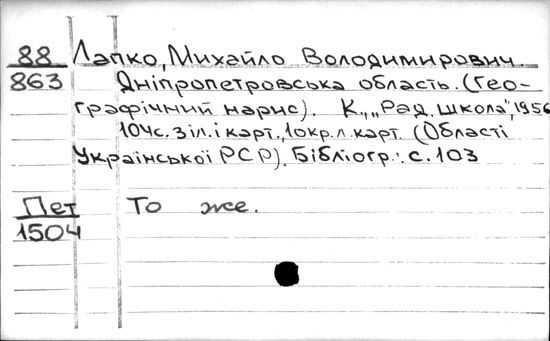 88 Лапко, Михайло Володимирович.
863 Дніпропетровська область. (Гео-
графічний нарис). К., „Рад. школа", 1956
104с. з іл. і карт., 1окр. л. карт. (Області
Української РСР). Бібліогр.: с. 103
Пет То же.
1504